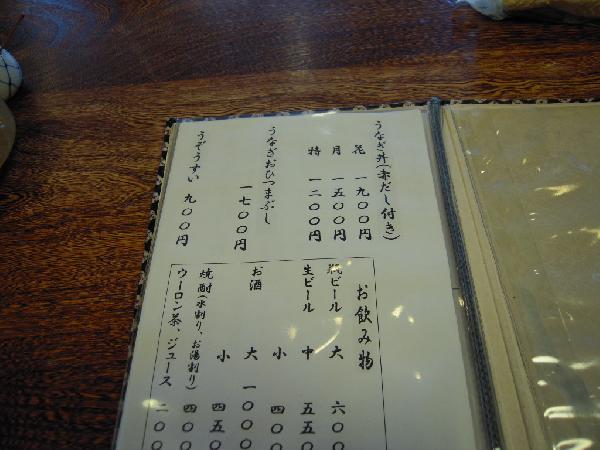 うなぎ丼(赤だし付き)
花 一九〇〇円
月 一五〇〇円
特 一二〇〇円
うなぎおひつまぶし
一七〇〇円
うぞうすい 九〇〇円
お飲み物
瓶ビール 大 六〇〇
生ビール 中 五五〇
小 四〇〇
お酒 大 一〇〇〇
小 四五〇
焼酎(水割り、お湯割り) 四〇〇
ウーロン茶・ジュース 二〇〇